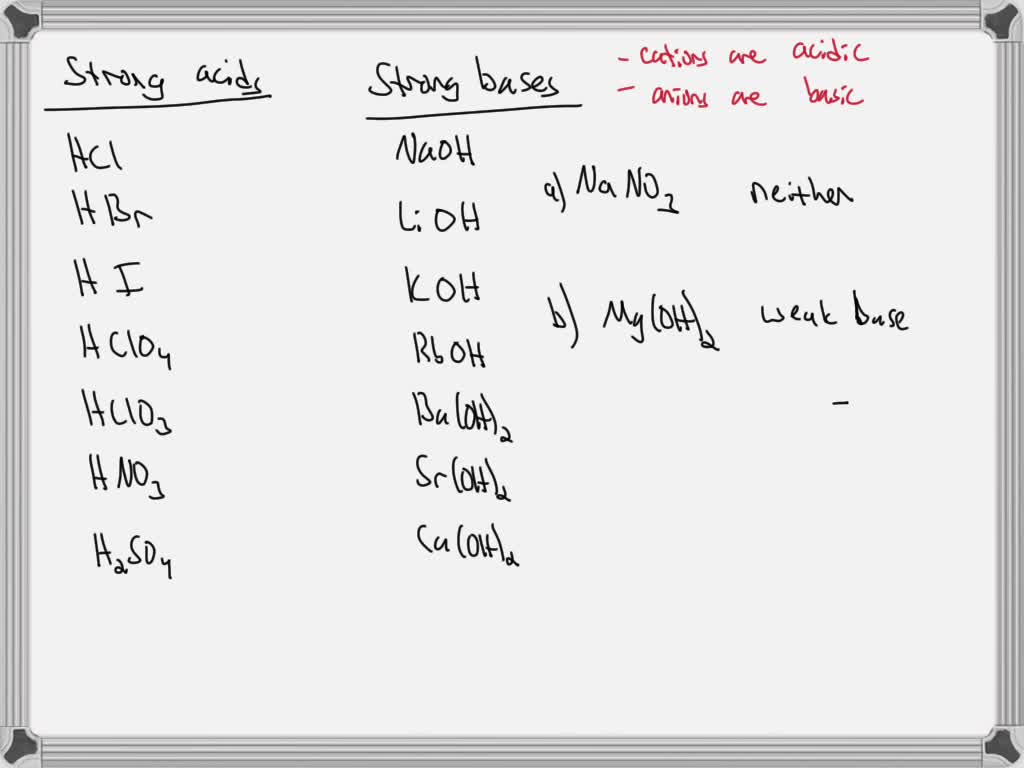 Strong acids
HCl
HBr
HI
HClO4
HClO3
HNO3
H2SO4
Strong bases
NaOH
LiOH
KOH
RbOH
Ba(OH)2
Sr(OH)2
Ca(OH)2
- cations are acidic
- anions are basic
a) NaNO3 neither
b) Mg(OH)2 weak base
-